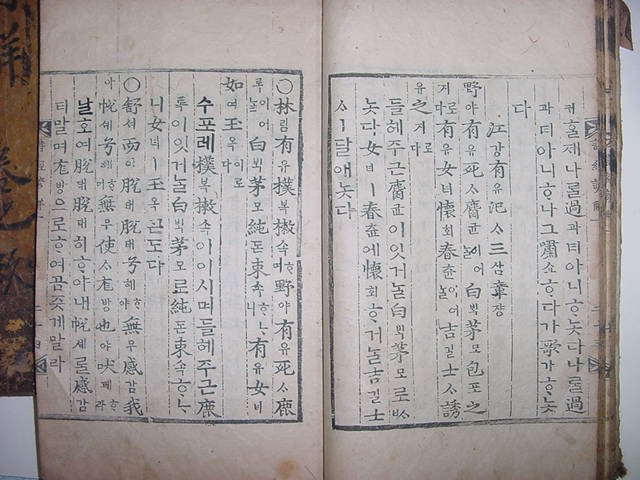 커홈제나ᄅᆞᆯ過과티아니ᄒᆞ놋다나ᄅᆞᆯ過
과티아니ᄒᆞ나그嘯쇼ᄒᆞ다가歌가ᄒᆞ놋
다
江강有유汜ᄉᆞ三삼章쟝
野야有유死ᄉᆞ麕균이어ᄂᆞᆯ白ᄇᆡᆨ茅모包포之
有유女녀懷회春츈이어ᄂᆞᆯ吉길士ᄉᆞ誘
유之
들헤주근麕균이잇거ᄂᆞᆯ白ᄇᆡᆨ茅모로ᄡᅡ
놋다女녀ㅣ春츈에懷회ᄒᆞ거ᄂᆞᆯ吉길士
ᄉᆞㅣ달애놋다
○林림有유樸복樕속ᄒᆞ며野야有유死ᄉᆞ鹿
록이어ᄂᆞᆯ白ᄇᆡᆨ茅모純돈束속ᄒᆞᄂᆞ니有유女녀
如여玉옥이로다
수포레樸복樕속이이시며들헤주근鹿
록이잇거ᄂᆞᆯ白ᄇᆡᆨ茅모로純돈束속ᄒᆞᄂᆞ
니女녀ㅣ玉옥ᄀᆞᆮ도다
○舒셔而이脫태脫태兮혜ᄒᆞ야無무感감我
아帨셰兮혜ᄒᆞ며無무使ᄉᆞ尨방也야吠폐ᄒᆞ라
날호여脫태脫태히ᄒᆞ야내帨셰ᄅᆞᆯ感감
티말며尨방으로ᄒᆞ여곰즛게말라